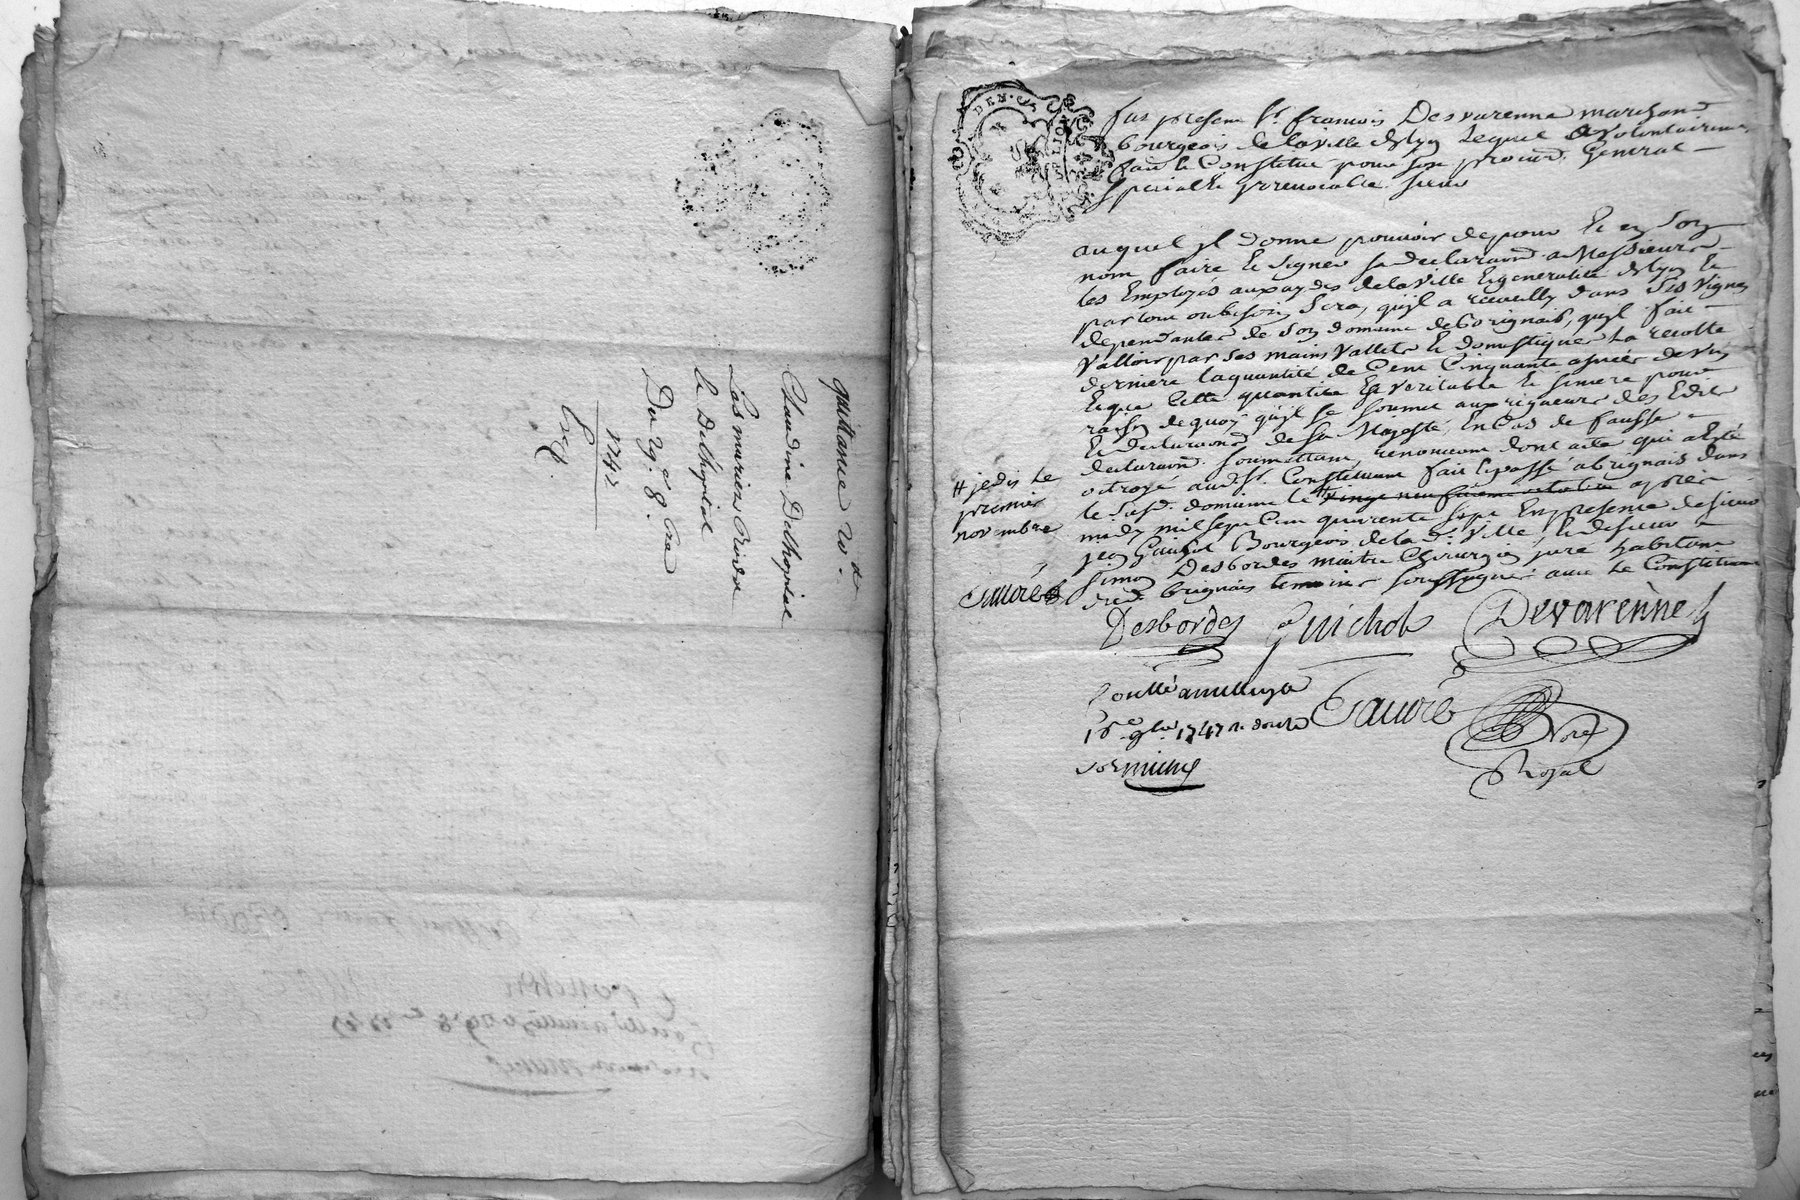 quittance
Claudine Delhopital
Les mariez
& Delhopital
Du 29e. 8bre
1747
DEN.
LION
fut present Sr. francois Desvarenne marchand
bourgeois de la ville de lyon Lequel volontairement
fait & Constitue pour son procur. General
special & yrrevocable sieur
auquel yl donne pouvoir de pour & en son
nom faire & signer sa declaration a Messieurs
les Employés aux aydes de la ville & generalité de lyon &
par tout ou besoin sera, qu'yl a recueilly dans ses vignes
dependantes de son domaine de brignais, qu'yl fait
valloir par ses mains valets & domestiques La recolte
derniere la quantité de Cent Cinquante asnées de vin
& que cette quantité est veritable & sincere pour
raison de quoy qu'yl se soumet aux rigueurs des Edits
& declarations de sa Majesté, En Cas de fausse
declaration. soumettant, renoncant dont acte qui a esté
octroyé audt. Sr. Constituant fait & passé a brignais dans
le susd. domaine le # vingt neufvieme octobre apres
midy mil sept Cent quarente sept En presence de sieur
Bourgeois de lad. ville, & de sieur
simon Desbordes maitre Chirurgien juré habitant
aud. brignais temoins soussignés avec le Constituant
# je dis le
premier
novembre
Desbordes Guichot Devarenne
1747
Royal